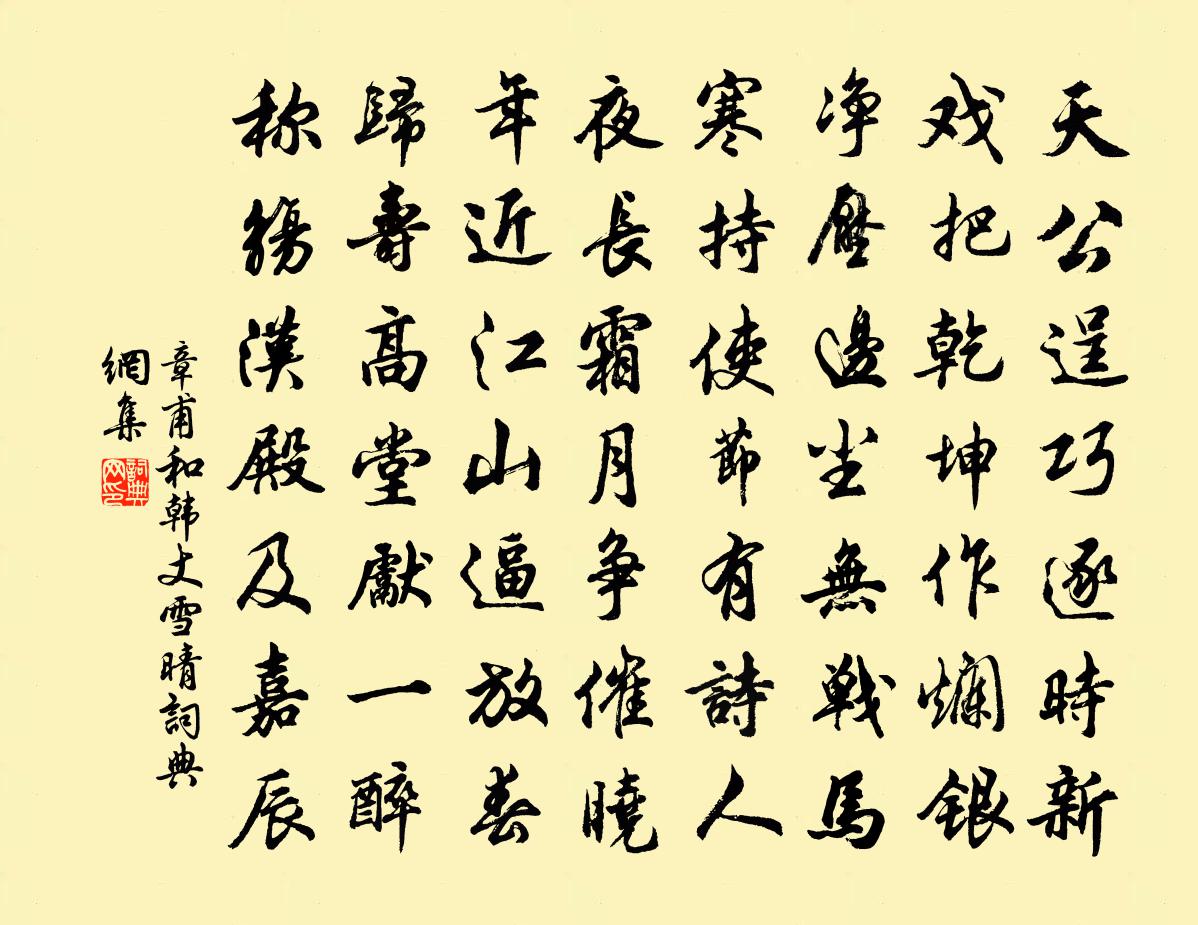 天公逞巧逐時新
戏把乾坤作爛銀
净壓邊尘無戰馬
寒持使節有詩人
夜長霜月争催曉
年近江山逼放春
歸壽高堂獻一醉
称觴漢殿及嘉辰
章甫和韩丈雪晴詞典
網集
詞典
网印